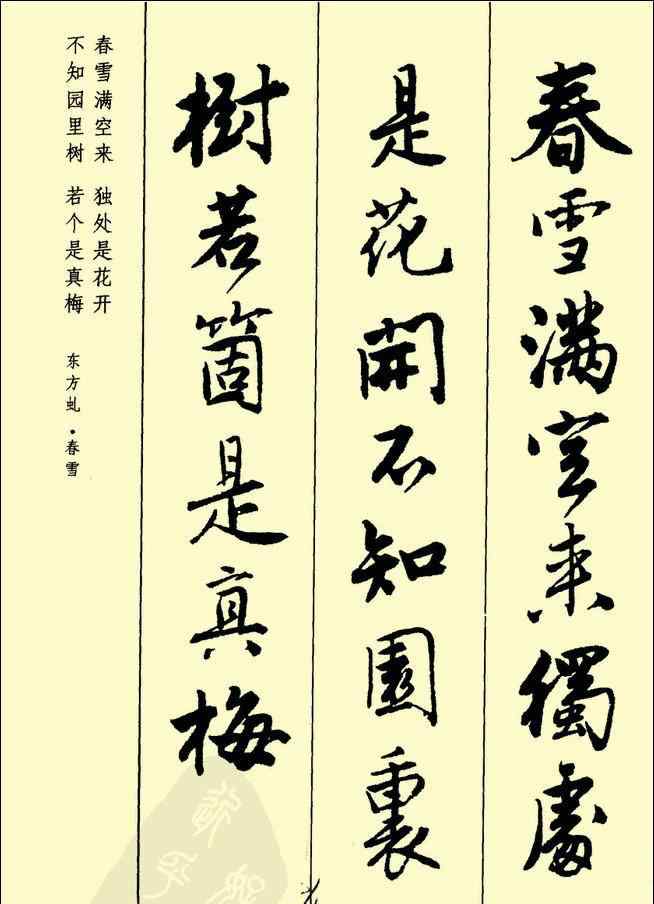 春雪满空来獨處
是花開不知園裏
樹若箇是真梅
春雪满空来 独处是花开
不知园里树 若个是真梅
东方虬·春雪